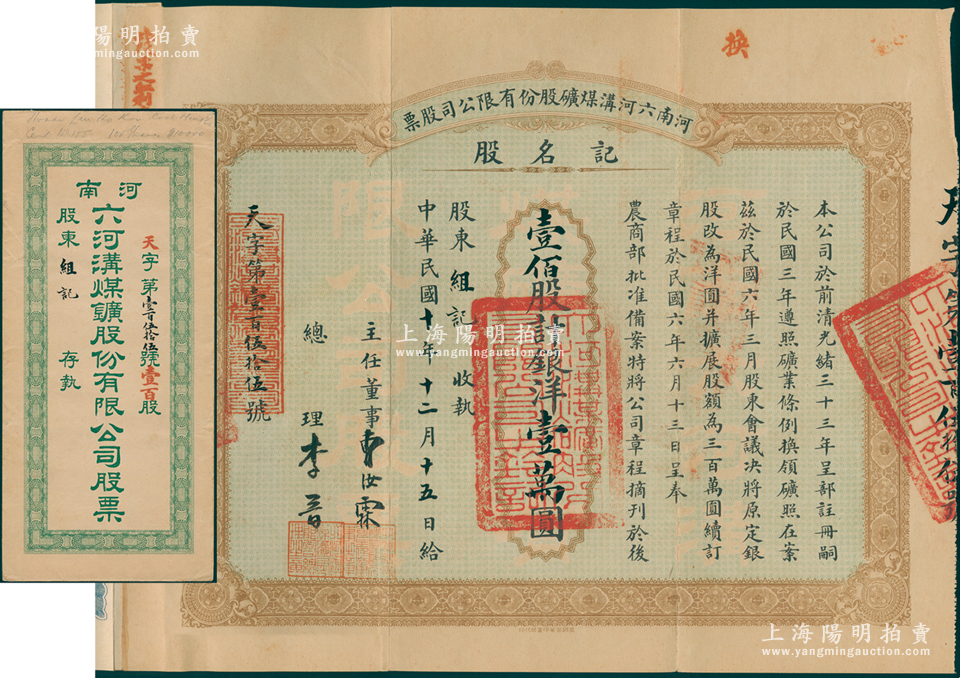 河南六河溝煤礦股份有限公司股票
記名股
本公司於前清光緒三十三年呈部註冊嗣
於民國三年遵照礦業條例換領礦照在案
茲於民國六年三月股東會議決將原定銀
股改為洋圓并擴展股額為三百萬圓續訂
章程於民國六年六月十三日呈奉
農商部批准備案特將公司章程摘刊於後
壹佰股計銀洋壹萬圓
股東 組記 收執
中華民國十年十二月十五日給
主任董事 曹汝霖
總理 李晉
天字第壹百伍拾伍號
換
河南
天字第壹百伍拾伍號壹百股
六河溝煤鑛股份有限公司股票
股東 組記 存執
上海陽明拍賣
www.yangmingauction.com
上海陽明拍賣
www.yangmingauction.com
上海陽明拍賣
www.yangmingauction.com